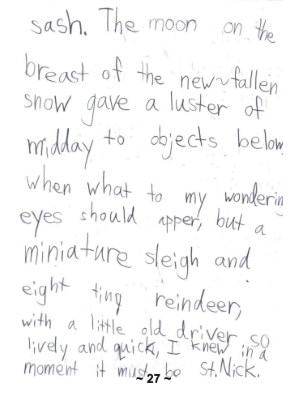 sash. The moon on the
breast of the new~fallen
snow gave a luster of
midday to objects below
when what to my wonderin
eyes should apper, but a
miniature sleigh and
eight tiny reindeer,
with a little old driver so
lively and quick, I knew in a
moment it must be St. Nick.
~ 27 ~